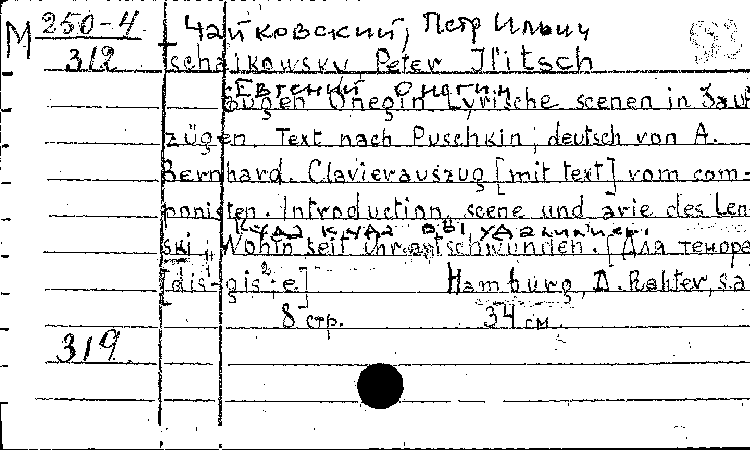 M 250-4 Чайковский, Петр Ильич
312 Tschaikowsky, Peter Iljitsch
Евгений Онегин
Eugen Onegin Lyrische scenen in 3 auf
zügen. Text nach Puschkin; deutsch von A.
Bernhard. Clavierauszug [mit text] vom com-
ponisten. Introduction, scene und arie des Len
Куда куда вы удалились.
ski „Wohin seit ihr entschwunden. [Для теноре
[dis-gis²; e.] Hamburg, D. Rahter, s.a
8 стр. 34 см.
319